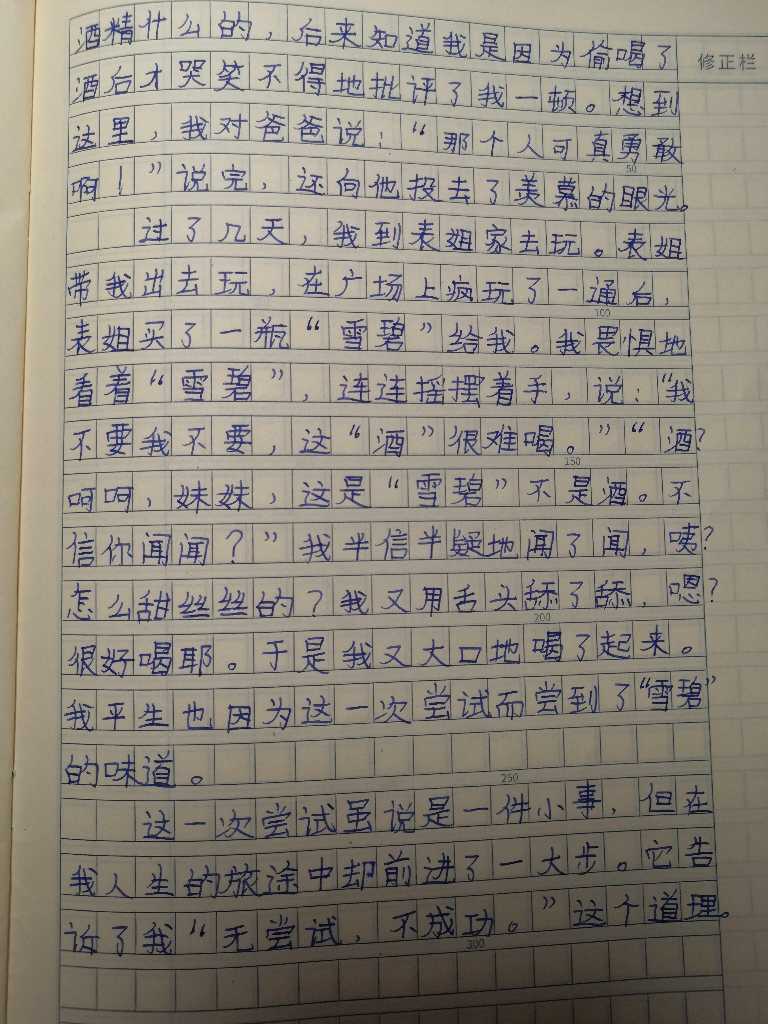 酒精什么的，后来知道我是因为偷喝了
修正栏
酒后才哭笑不得地批评了我一顿。想到
这里，我对爸爸说：“那个人可真勇敢
50
啊！”说完，还向他投去了羡慕的眼光。
过了几天，我到表姐家去玩。表姐
带我出去玩，在广场上疯玩了一通后，
100
表姐买了一瓶“雪碧”给我。我畏惧地
看着“雪碧”，连连摇摆着手，说：“我
不要我不要，这“酒”很难喝。”“酒？
150
呵呵，妹妹，这是“雪碧”不是酒。不
信你闻闻？”我半信半疑地闻了闻，咦？
怎么甜丝丝的？我又用舌头舔了舔，嗯？
200
很好喝耶。于是我又大口地喝了起来。
我平生也因为这一次尝试而尝到了“雪碧”
的味道。
250
这一次尝试虽说是一件小事，但在
我人生的旅途中却前进了一大步。它告
诉了我“无尝试，不成功。”这个道理。
300